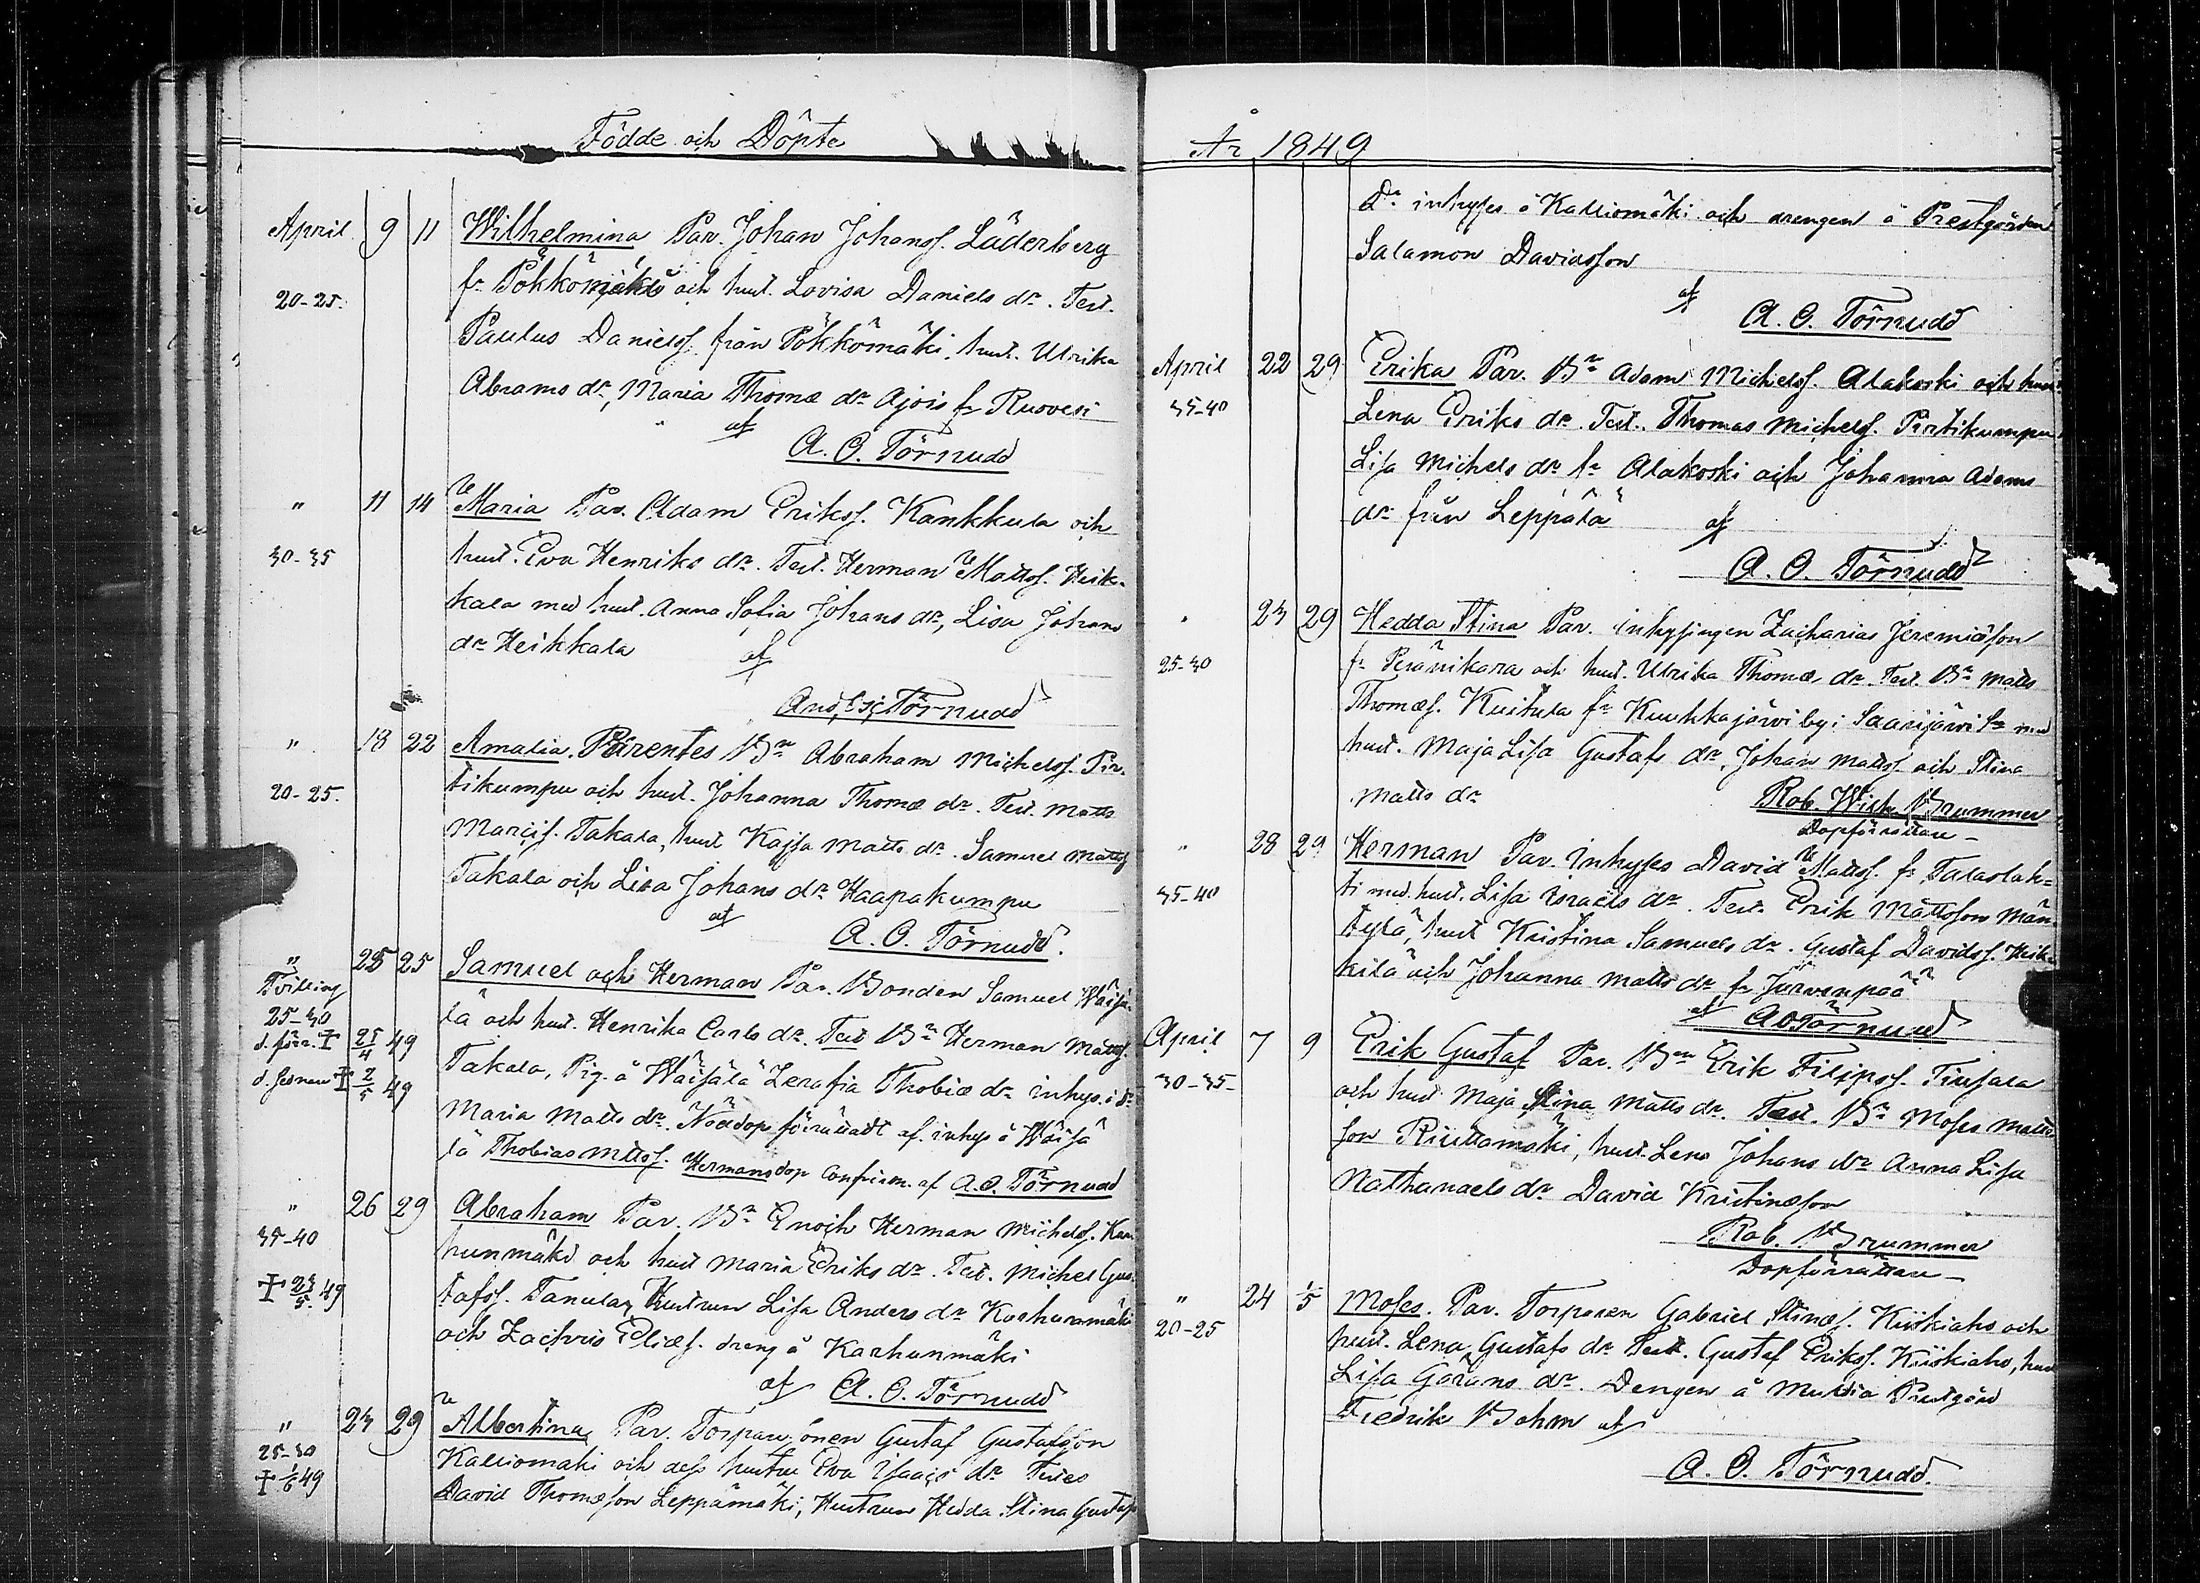 Födde och Döpte
April 9 11 Wilhelmina Par. Johan Johanss. Läderberg
20-25. fr Pökkömäki och hust. Lovisa Daniels dr. Test.
Paulus Daniels. från Pökkömäki, hust. Ulrika
Abrams dr, Maria Thomæ dr Ajois fr Ruovesi
af
A. O. Törnudd
" 11 14 Maria Par. Adam Erikss. Kankkula och
30-35 hust. Eva Henriks dr. Test. Herman Matts. Heik-
kala med hust. Anna Sofia Johans dr, Lisa Johans
dr Heikkala af
Törnudd
" 18 22 Amalia. Parentes Bn Abraham Michels. Pir-
20-25. tikumpu och hust. Johanna Thomæ dr. Test. Matts
Marcis. Takala, hust Kajsa Matts dr. Samuel Matts
Takala och Lisa Johans dr Haapakumpu
af
A. O. Törnudd.
" 25 25 Samuel och Herman Par. Bonden Samuel Wäisä-
Tvilling
25-30 lä och hust. Henrika Carls dr. Test Bn Herman Matts.
d. förr. † 25/4 49 Takala, Pig. å Wäisälä Zerafia Thobiæ dr inhys. i dr
d. sednare † 2/5 49 Maria Matts dr. Nöddop förrättadt af. inhys å Wäisä
lä Thobias Mttss. Hermans dop confirm. af A. O. Törnudd
" 26 29 Abraham Par. Bn Enoch Herman Michels. Kar-
35-40 hunmäki och hust Maria Eriks dr. Test. Michel Gus-
† 23/5 49 tafss. Tanula, Hustrun Lisa Anders dr Karhunmäki
och Zachris Eliæs. dreng å Karhunmäki
af A. O. Törnudd
" 23 29 Albertina, Par. Gustaf Gustafsson
25-30 Kalliomäki och dess hustru Eva Isaacs dr Testes
† 1/6 49 David Thomæson Leppämäki, Hustrun Hedda Stina Gustafs

År 1849
Dr inhyses å Kalliomäki och drengen å Prestgården
Salamon Davidsson
af
A. O. Törnudd
April 22 29 Erika Par. Bn Adam Michels. Alakoski och hust.
35-40 Lena Eriks dr. Test. Thomas Michels. Pirtikumpu
Lisa Michels dr fr Alakoski och Johanna Adams
dr från Leppälä af
A. O. Törnudd
" 23 29 Hedda Stina Par. inhysingen Zacharias Jeremiäson
25-30 fr Peränikara och hust. Ulrika Thomæ dr. Test. Bn Matts
Thomæs. Kuitula fr Kuukkajärvi by i Saarijärvi Sn med
hust. Maja Lisa Gustafs dr, Johan Matts. och Stina
Matts dr Rob. Wilh. Brummer
Dopförrättare
" 28 29 Herman Par. Inhyses David Matts. fr Talaslah-
35-40 ti med hust. Lisa Israels dr. Test. Erik Mattsson Män-
tylä, hust Kristina Samuels dr. Gustaf Davids. Heik-
kilä och Johanna Matts dr fr Järvenpää
af AOTörnudd
April 7 9 Erik Gustaf Par. Bn Erik Filips. Tiusala
30-35 och hust Maja Stina Matts dr. Test. Bn Moses Matts-
son Riuttamäki, hust. Lena Johans dr Anna Lisa
Nathanaels dr David Kristinæson
Rob. Brummer
Dopförrättare
" 24 1/5 Moses. Par. Torparen Gabriel Stinæs. Kiiskiaho och
20-25 hust. Lena Gustafs dr Test. Gustaf Erikss. Kiiskiaho, hust
Lisa Görans dr. Dengen å Multia Prestgård
Fredrik Bohm af
A. O. Törnudd.